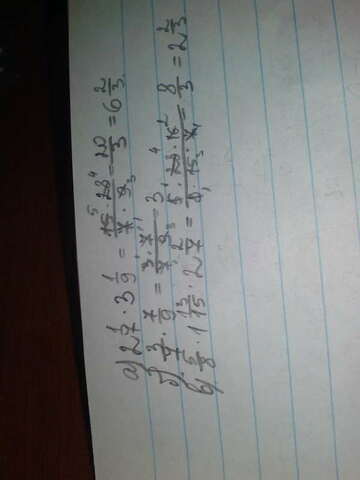 а) 2 1/7 · 3 1/9 = 15 · 28 / 7 · 9 = 20/3 = 6 2/3.
б) 3/7 · 7/9 = 3 · 7 / 7 · 9
в) 5/8 · 1 13/15 · 2 2/7 = 5 · 28 · 16 / 8 · 15 · 7 = 8/3 = 2 2/3